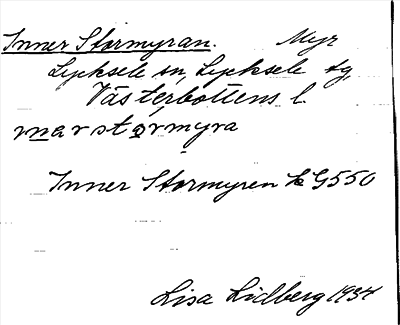 Inner Stormyran. Myr
Lycksele sn, Lycksele tg
Västerbottens l.
ınarstormyra
Inner Stormyren k G550
Lisa Lidberg 1934